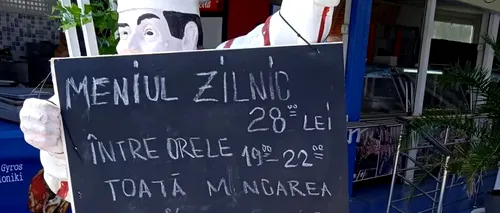 MENIUL ZILNIC
28⁰⁰ LEI
ÎNTRE ORELE 19⁰⁰ 22⁰⁰
TOATĂ MINCAREA
Gyros
loniki